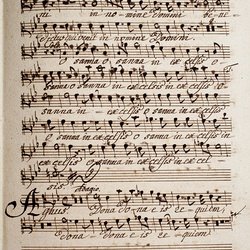 ni in no-mine Domini be-ne-
dictus qui venit in nomine Domini.
O sanna o sanna in excelsis o-
sanna o sanna in excelsis in excelsis o-
sanna in ex-celsis o sanna in ex-
celsis o sanna in excelsis in ex-
celsis o sanna in excelsis in excel-
sis Adagio.
Agnus. Dona Dona eis re-quiem,
Dona Dona eis re-quiem